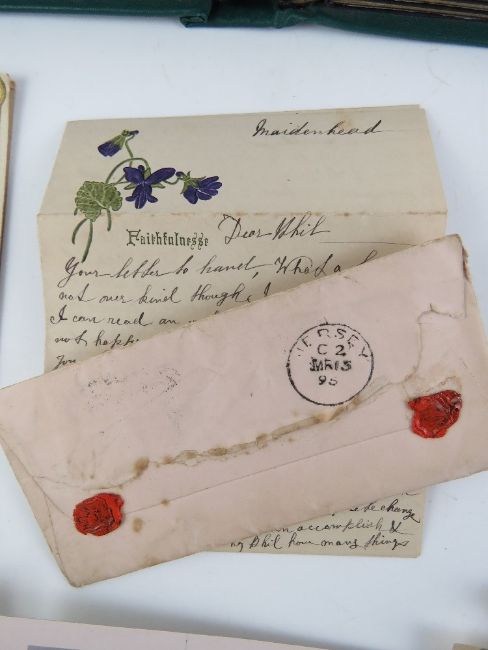 Maidenhead
Faithfulnesse Dear Phil
Your letter to hand,
not over kind though, I
I can read an
not
you
JERSEY
C 2
MR 13
95
change
accomplish &
Phil how many things